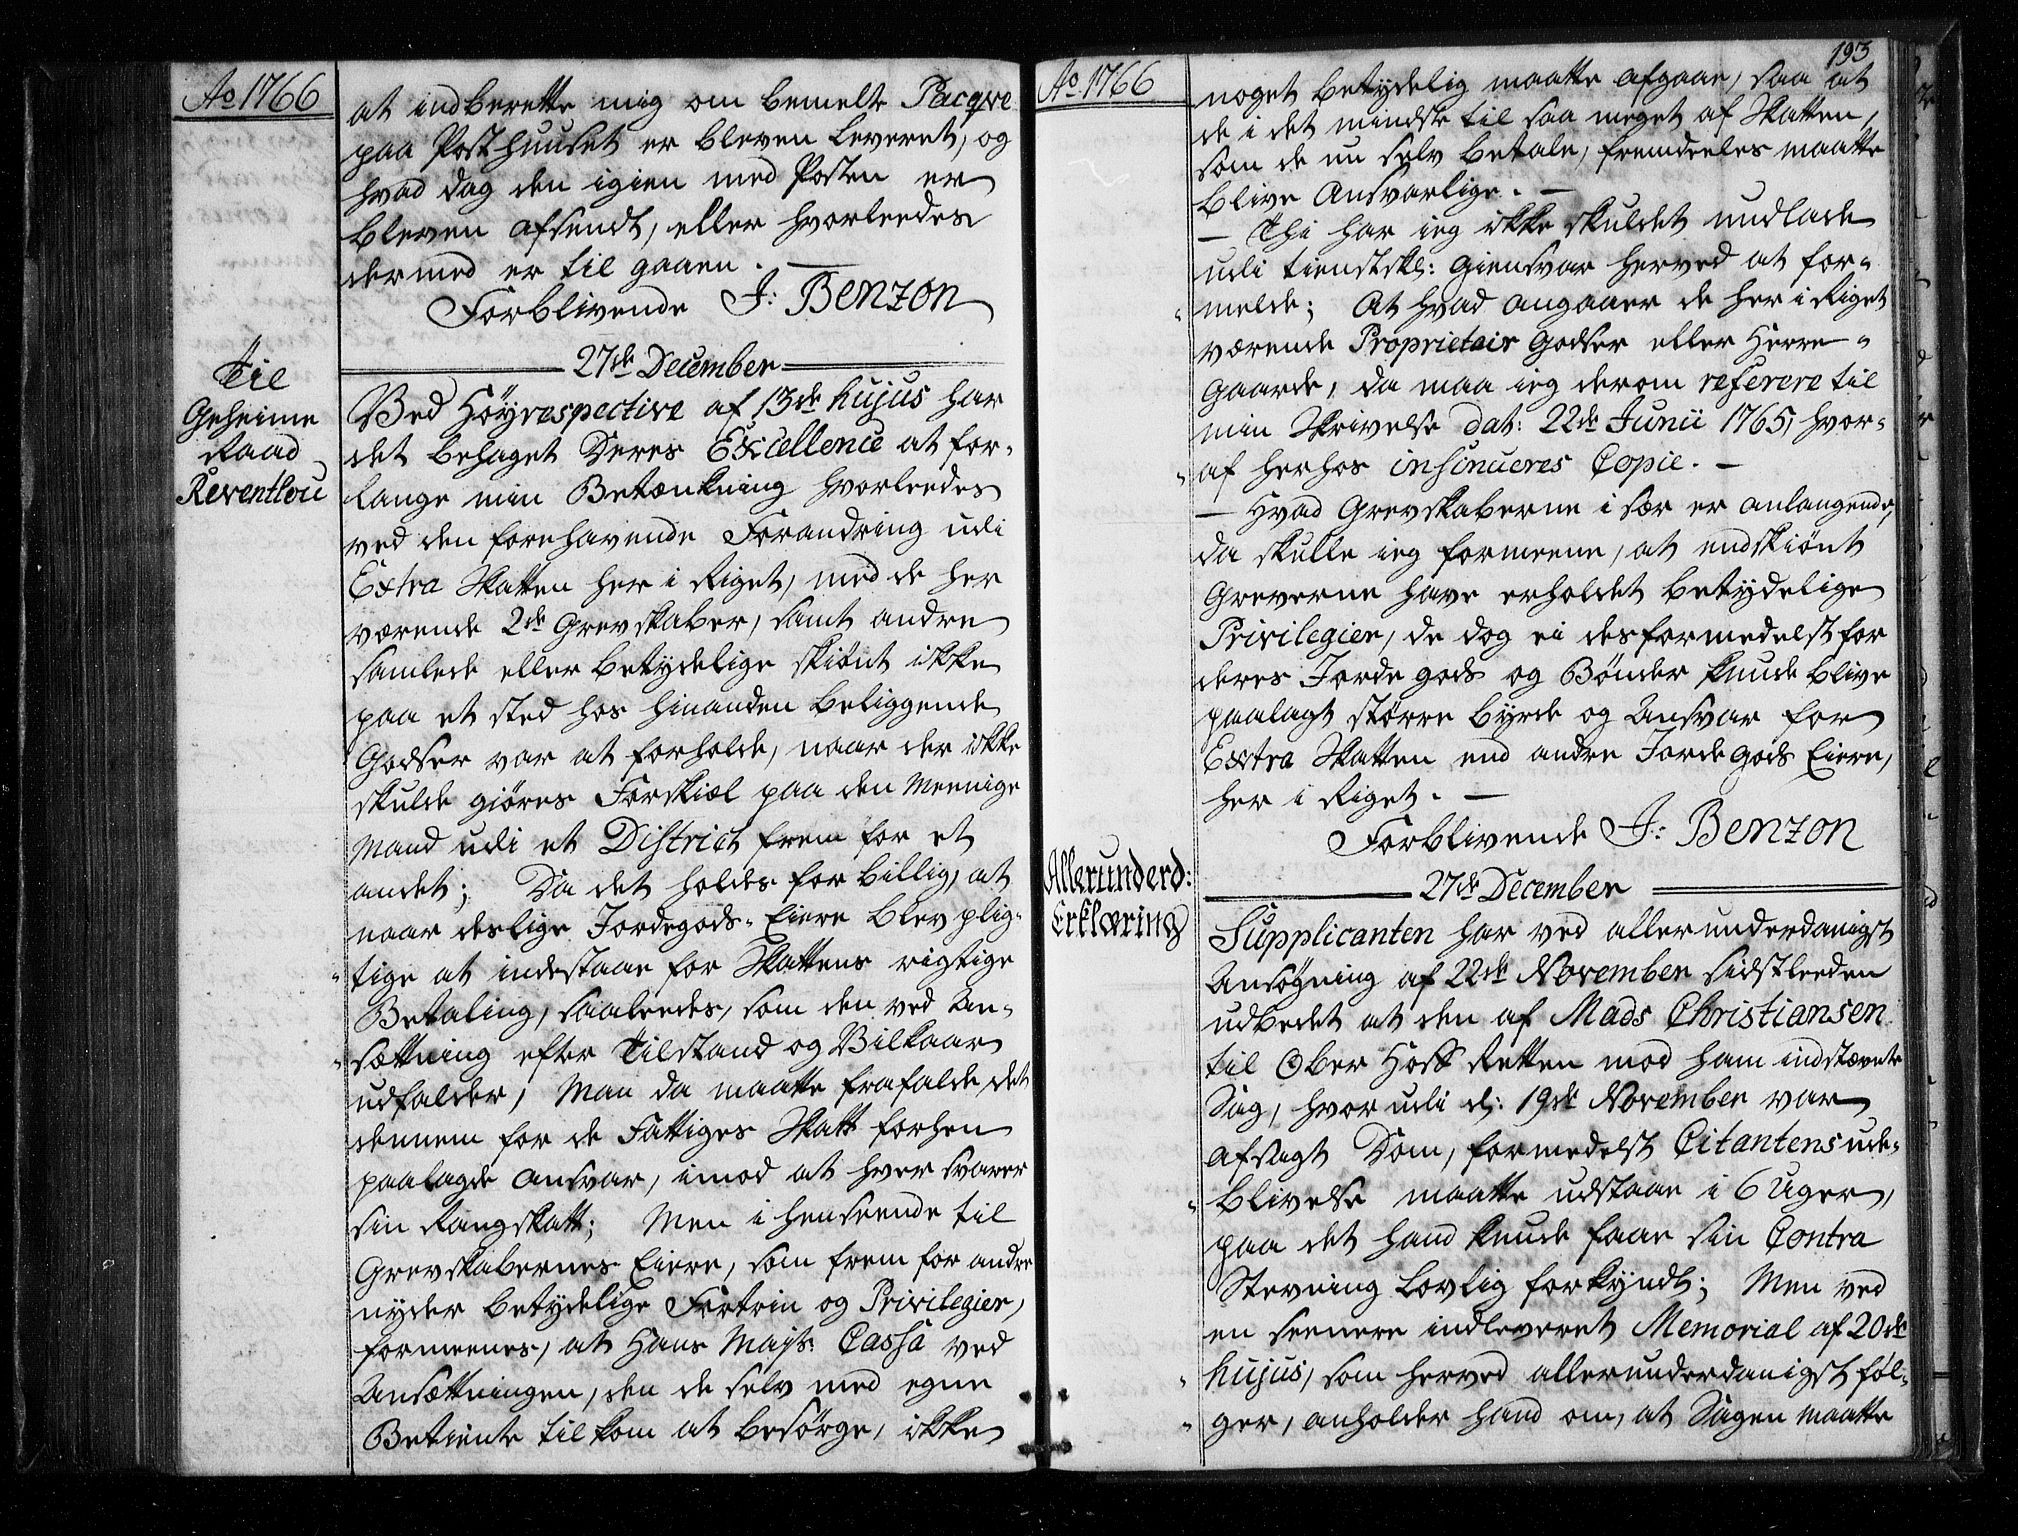 Ao 1766
at indberette mig om bemelte Pacqve
paa Posthuuset er bleven leveret, og
hvad dag den igien med Posten er
bleven afsendt, eller hvorleedes
dermed er til gaaen. —
Forblivende J: Benzon
27de December
Til
Geheime
Raad
Reventlou
Ved Høyrespective af 13de hujus har
det behaget Deres Excellence at for-
lange min Betænkning hvorleedes
ved den forehavende Forandring udi
Extra Skatten her i Riget, med de her
værende 2de Grevskaber, samt andre
samlede eller betydelige skiønt ikke
paa et sted hos hinanden beliggende
Godser var at forholde, naar der ikke
skulde giøres Forskiæl paa den meenige
Mand udi et District frem for et
andet; Da det holdes for billig, at
naar deslige Jordegods-Eiere blev plig-
tige at indestaae for Skattens rigtige
Betaling, saaleedes, som den ved An-
sættning efter Tilstand og Vilkaar
udfalder, Man da maatte frafalde det
dennem for de Fattiges Skatt forhen
paalagde Ansvar, imod at hver svarer
sin Rangskatt; Men i henseende til
Grevskabernes Eiere, som frem for andre
nyder betydelige Fortrin og Privilegier,
formeenes, at Hans Majts: Cassa ved
Ansættningen, den de selv med egne
Betiente tilkom at besørge, ikke
Ao 1766
193
noget betydelig maatte afgaae, saa at
de i det mindste til saa meget af Skatten,
som de nu selv betale, fremdeeles maatte
blive Ansvarlige. —
— Thi har ieg ikke skuldet undlade
udi tienstskl: Giensvar herved at for-
melde; At hvad angaaer de her i Riget
værende Proprietair Godser eller Herre-
Gaarde, da maa ieg derom referere til
min Skrivelse dat: 22de Junii 1765, hvor-
af herhos insinueres Copie. —
— Hvad Grevskaberne i sær er anlangende,
da skulle ieg formeene, at endskiønt
Greverne have erholdet betydelige
Privilegier, de dog ei desformedelst for
deres Jorde gods og Bønder kunde blive
paalagt større byrde og Ansvar for
Extra Skatten end andre Jorde Gods Eiere,
her i Riget. —
Forblivende J: Benzon
27de December
Allerunderd:
Erklæring
Supplicanten har ved allerunderdanigst
Ansøgning af 22de November sidstleeden
udbedet at den af Mads Christiansen
til Ober Hoff Retten mod ham indstævnte
Sag, hvor udi d: 19de November var
afsagt Dom, formedelst Citantens ude-
blivelse maatte udstaae i 6 Uger,
paa det hand kunde faae sin Contra
Stevning lovlig forkyndt; Men ved
en seenere indleveret Memorial af 20de
hujus, som herved allerunderdanigst føl-
ger, anholder hand om, at Sagen maatte